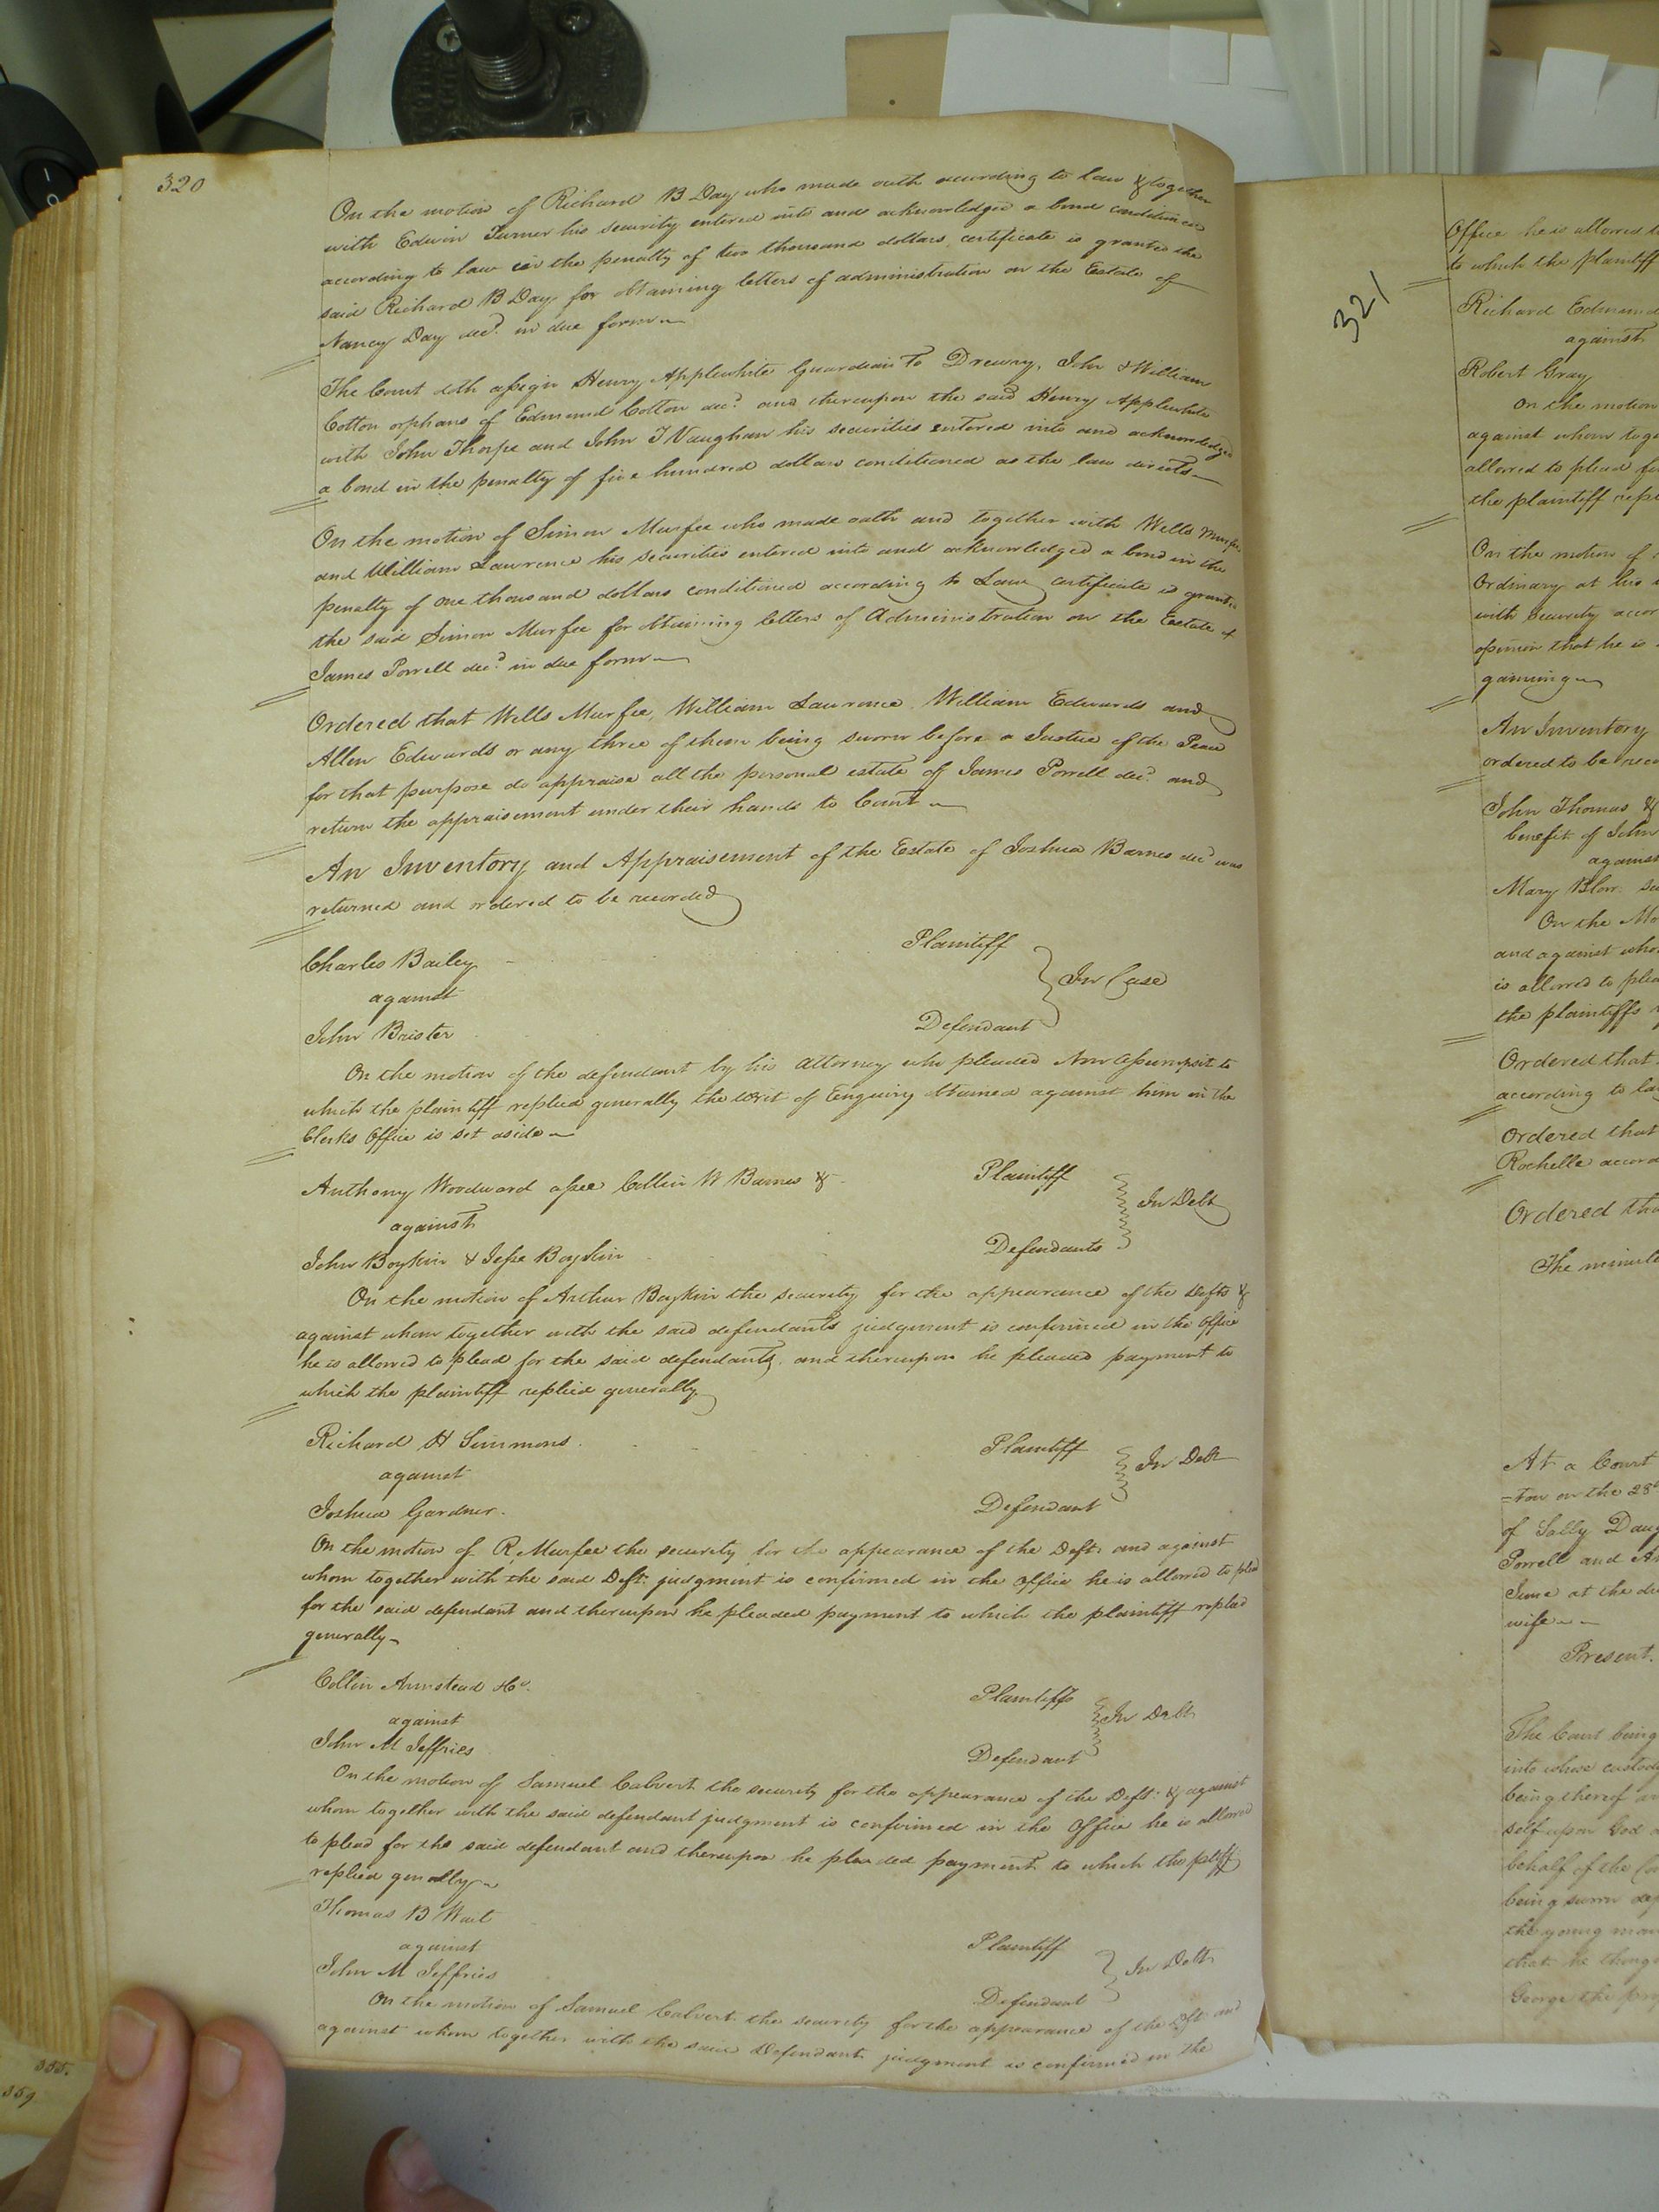 320
On the motion of Richard B Day who made oath according to law & together
with Edwin Turner his security entered into and acknowledged a bond conditioned
according to law in the penalty of two thousand dollars certificate is granted the
said Richard B Day for obtaining letters of administration on the Estate of
Nancy Day decd. in due form
The Court doth assign Henry Applewhite Guardian to Drewry, John & William
Cotton orphans of Edmund Cotton decd. and thereupon the said Henry Applewhite
with John Thorpe and John T Vaughan his securities entered into and acknowledged
a bond in the penalty of five hundred dollars conditioned as the law directs
On the motion of Simon Murfee who made oath and together with Wells Murfee
and William Lawrence his securities entered into and acknowledged a bond in the
penalty of one thousand dollars conditioned according to Law certificate is granted
the said Simon Murfee for obtaining letters of Administration on the Estate of
James Porrell decd. in due form
Ordered that Wells Murfee, William Lawrence, William Edwards and
Allen Edwards or any three of them being sworn before a Justice of the Peace
for that purpose do appraise all the personal estate of James Porrell decd. and
return the appraisement under their hands to Court
An Inventory and Appraisement of the Estate of Joshua Barnes decd was
returned and ordered to be recorded
Charles Bailey Plaintiff
against In Case
John Brister Defendant
On the motion of the defendant by his attorney who pleaded Non Assumpsit to
which the plaintiff replied generally the writ of Enquiry obtained against him in the
Clerks Office is set aside
Anthony Woodward assee Collin W Barnes & Plaintiff
against In Debt
John Boykin & Jesse Boykin Defendants
On the motion of Arthur Boykin the security for the appearance of the Defts &
against whom together with the said defendants judgment is confirmed in the Office
he is allowed to plead for the said defendants, and thereupon he pleaded payment to
which the plaintiff replied generally
Richard H Simmons Plaintiff
against In Debt
Joshua Gardner. Defendant
On the motion of R Murfee the security for the appearance of the Deft. and against
whom together with the said Deft. judgment is confirmed in the office he is allowed to plead
for the said defendant and thereupon he pleaded payment to which the plaintiff replied
generally
Collin Armstead &Co. Plaintiffs
against In Debt
John M Jeffries Defendant
On the motion of Samuel Calvert the security for the appearance of the Deft. & against
whom together with the said defendant judgment is confirmed in the Office he is allowed
to plead for the said defendant and thereupon he pleaded payment to which the pltff
replied generally
Thomas B Wait Plaintiff
against In Debt
John M Jeffries Defendant
On the motion of Samuel Calvert the security for the appearance of the Deft and
against whom together with the said Defendant judgment is confirmed in the
355.
359
321
Office he is allowed
to which the plaintiff
Richard Edmund
against
Robert Gray
On the motion
against whom
allowed to plead
the plaintiff
On the motion of
Ordinary at his
with security
opinion that he is
gaming
An Inventory
ordered to be
John Thomas &
benefit of John
against
Mary Blow
On the
and against
is allowed to
the plaintiffs
Ordered that
according to
Ordered that
Rochelle
Ordered
The
At a Court
=ton on the 28
of Sally
Porrell and
June at the
wife
Present.
The Court being
into whose
being thereof
self upon God
behalf of the
being sworn
the young man
that he
George the